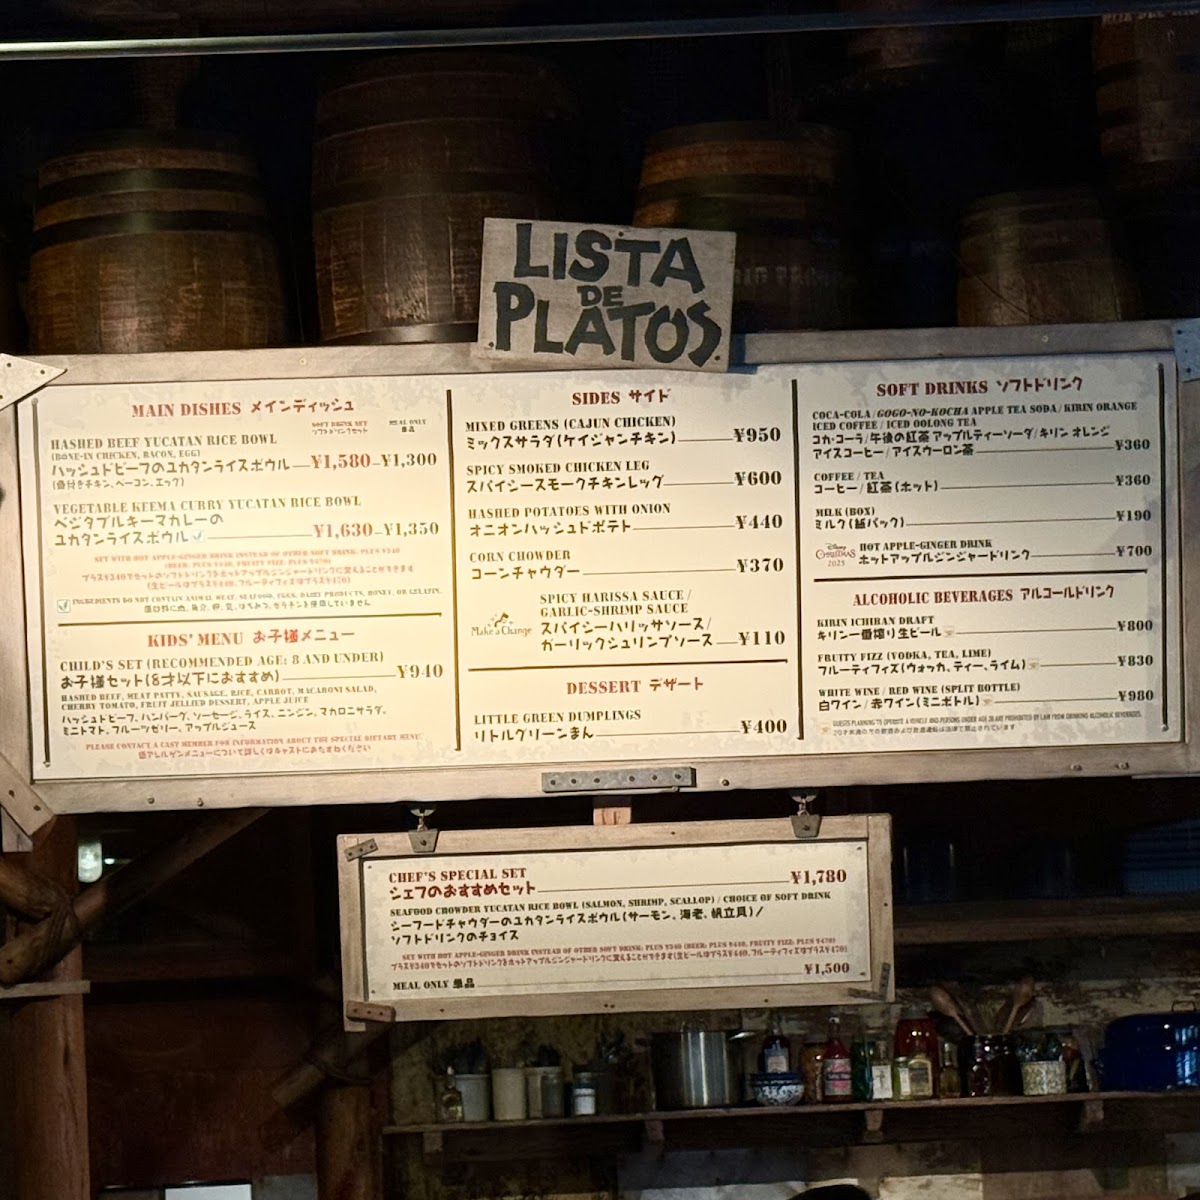 LISTA
DE
PLATOS
MAIN DISHES メインディッシュ
SOFT DRINK SET
ソフトドリンクセット
MEAL ONLY
単品
HASHED BEEF YUCATAN RICE BOWL
(BONE-IN CHICKEN, BACON, EGG)
ハッシュドビーフのユカタンライスボウル ¥1,580 ¥1,300
(骨付きチキン、ベーコン、エッグ)
VEGETABLE KEEMA CURRY YUCATAN RICE BOWL
ベジタブルキーマカレーの
ユカタンライスボウル ¥1,630 ¥1,350
SET WITH HOT APPLE-GINGER DRINK INSTEAD OF OTHER SOFT DRINK: PLUS ¥340
(BEER: PLUS ¥440, FRUITY FIZZ: PLUS ¥470)
プラス¥340でセットのソフトドリンクをホットアップルジンジャードリンクに変えることができます
(生ビールはプラス¥440、フルーティフィズはプラス¥470)
INGREDIENTS DO NOT CONTAIN ANIMAL MEAT, SEAFOOD, EGGS, DAIRY PRODUCTS, HONEY, OR GELATIN.
原材料に肉、魚介、卵、乳、はちみつ、ゼラチンを使用していません
KIDS' MENU お子様メニュー
CHILD'S SET (RECOMMENDED AGE: 8 AND UNDER)
お子様セット(8才以下におすすめ) ¥940
HASHED BEEF, MEAT PATTY, SAUSAGE, RICE, CARROT, MACARONI SALAD,
CHERRY TOMATO, FRUIT JELLIED DESSERT, APPLE JUICE
ハッシュドビーフ、ハンバーグ、ソーセージ、ライス、ニンジン、マカロニサラダ、
ミニトマト、フルーツゼリー、アップルジュース
PLEASE CONTACT A CAST MEMBER FOR INFORMATION ABOUT THE SPECIAL DIETARY MENU.
低アレルゲンメニューについて詳しくはキャストにおたずねください
SIDES サイド
MIXED GREENS (CAJUN CHICKEN)
ミックスサラダ(ケイジャンチキン) ¥950
SPICY SMOKED CHICKEN LEG
スパイシースモークチキンレッグ ¥600
HASHED POTATOES WITH ONION
オニオンハッシュドポテト ¥440
CORN CHOWDER
コーンチャウダー ¥370
Make a Change
SPICY HARISSA SAUCE /
GARLIC-SHRIMP SAUCE
スパイシーハリッサソース/
ガーリックシュリンプソース ¥110
DESSERT デザート
LITTLE GREEN DUMPLINGS
リトルグリーンまん ¥400
SOFT DRINKS ソフトドリンク
COCA-COLA / GOGO-NO-KOCHA APPLE TEA SODA / KIRIN ORANGE
ICED COFFEE / ICED OOLONG TEA
コカ・コーラ/午後の紅茶 アップルティーソーダ/キリン オレンジ
アイスコーヒー/アイスウーロン茶 ¥360
COFFEE / TEA
コーヒー/紅茶(ホット) ¥360
MILK (BOX)
ミルク(紙パック) ¥190
Disney
CHRISTMAS
2025
HOT APPLE-GINGER DRINK
ホットアップルジンジャードリンク ¥700
ALCOHOLIC BEVERAGES アルコールドリンク
KIRIN ICHIBAN DRAFT
キリン一番搾り生ビール ¥800
FRUITY FIZZ (VODKA, TEA, LIME)
フルーティフィズ(ウォッカ、ティー、ライム) ¥830
WHITE WINE / RED WINE (SPLIT BOTTLE)
白ワイン/赤ワイン(ミニボトル) ¥980
GUESTS PLANNING TO OPERATE A VEHICLE AND PERSONS UNDER AGE 20 ARE PROHIBITED BY LAW FROM DRINKING ALCOHOLIC BEVERAGES.
20才未満の方の飲酒および飲酒運転は法律で禁止されています
CHEF'S SPECIAL SET
シェフのおすすめセット ¥1,780
SEAFOOD CHOWDER YUCATAN RICE BOWL (SALMON, SHRIMP, SCALLOP) / CHOICE OF SOFT DRINK
シーフードチャウダーのユカタンライスボウル(サーモン、海老、帆立貝)/
ソフトドリンクのチョイス
SET WITH HOT APPLE-GINGER DRINK INSTEAD OF OTHER SOFT DRINK: PLUS ¥340 (BEER: PLUS ¥440, FRUITY FIZZ: PLUS ¥470)
プラス¥340でセットのソフトドリンクをホットアップルジンジャードリンクに変えることができます(生ビールはプラス¥440、フルーティフィズはプラス¥470)
MEAL ONLY 単品 ¥1,500